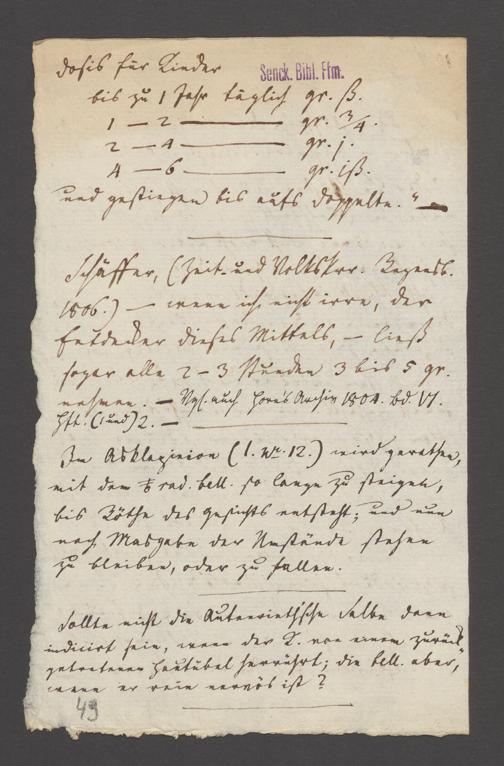 Dosis für Kinder
Senck. Bibl. Ffm.
bis zu 1 Jahr täglich gr. ß.
1 — 2 ——— gr. 3/4.
2 — 4 ——— gr. j.
4 — 6 ——— gr. iß.
und gestiegen bis aufs doppelte." —
Schäffer, (Zeit- und Volkskr. Regensb.
1806.) — wenn ich nicht irre, der
Entdecker dieses Mittels, — ließ
sogar alle 2 – 3 Stunden 3 bis 5 gr.
nehmen. — Vgl. auch Horn's Archiv 1804. Bd. VI.
Hft. (1 und) 2. —
Im Asklepieion (1. Nr. 12.) wird gerathen,
mit dem rad. bell. so lange zu steigen,
bis Röthe des Gesichts entsteht; und nun
nach Masgabe der Umstände stehen
zu bleiben, oder zu fallen.
Sollte nicht die Autenrieth'sche Salbe dann
indicirt sein, wenn der K. von einem zurück-
getretenen Hautübel herrührt; die bell. aber,
wenn er rein nervös ist?
49